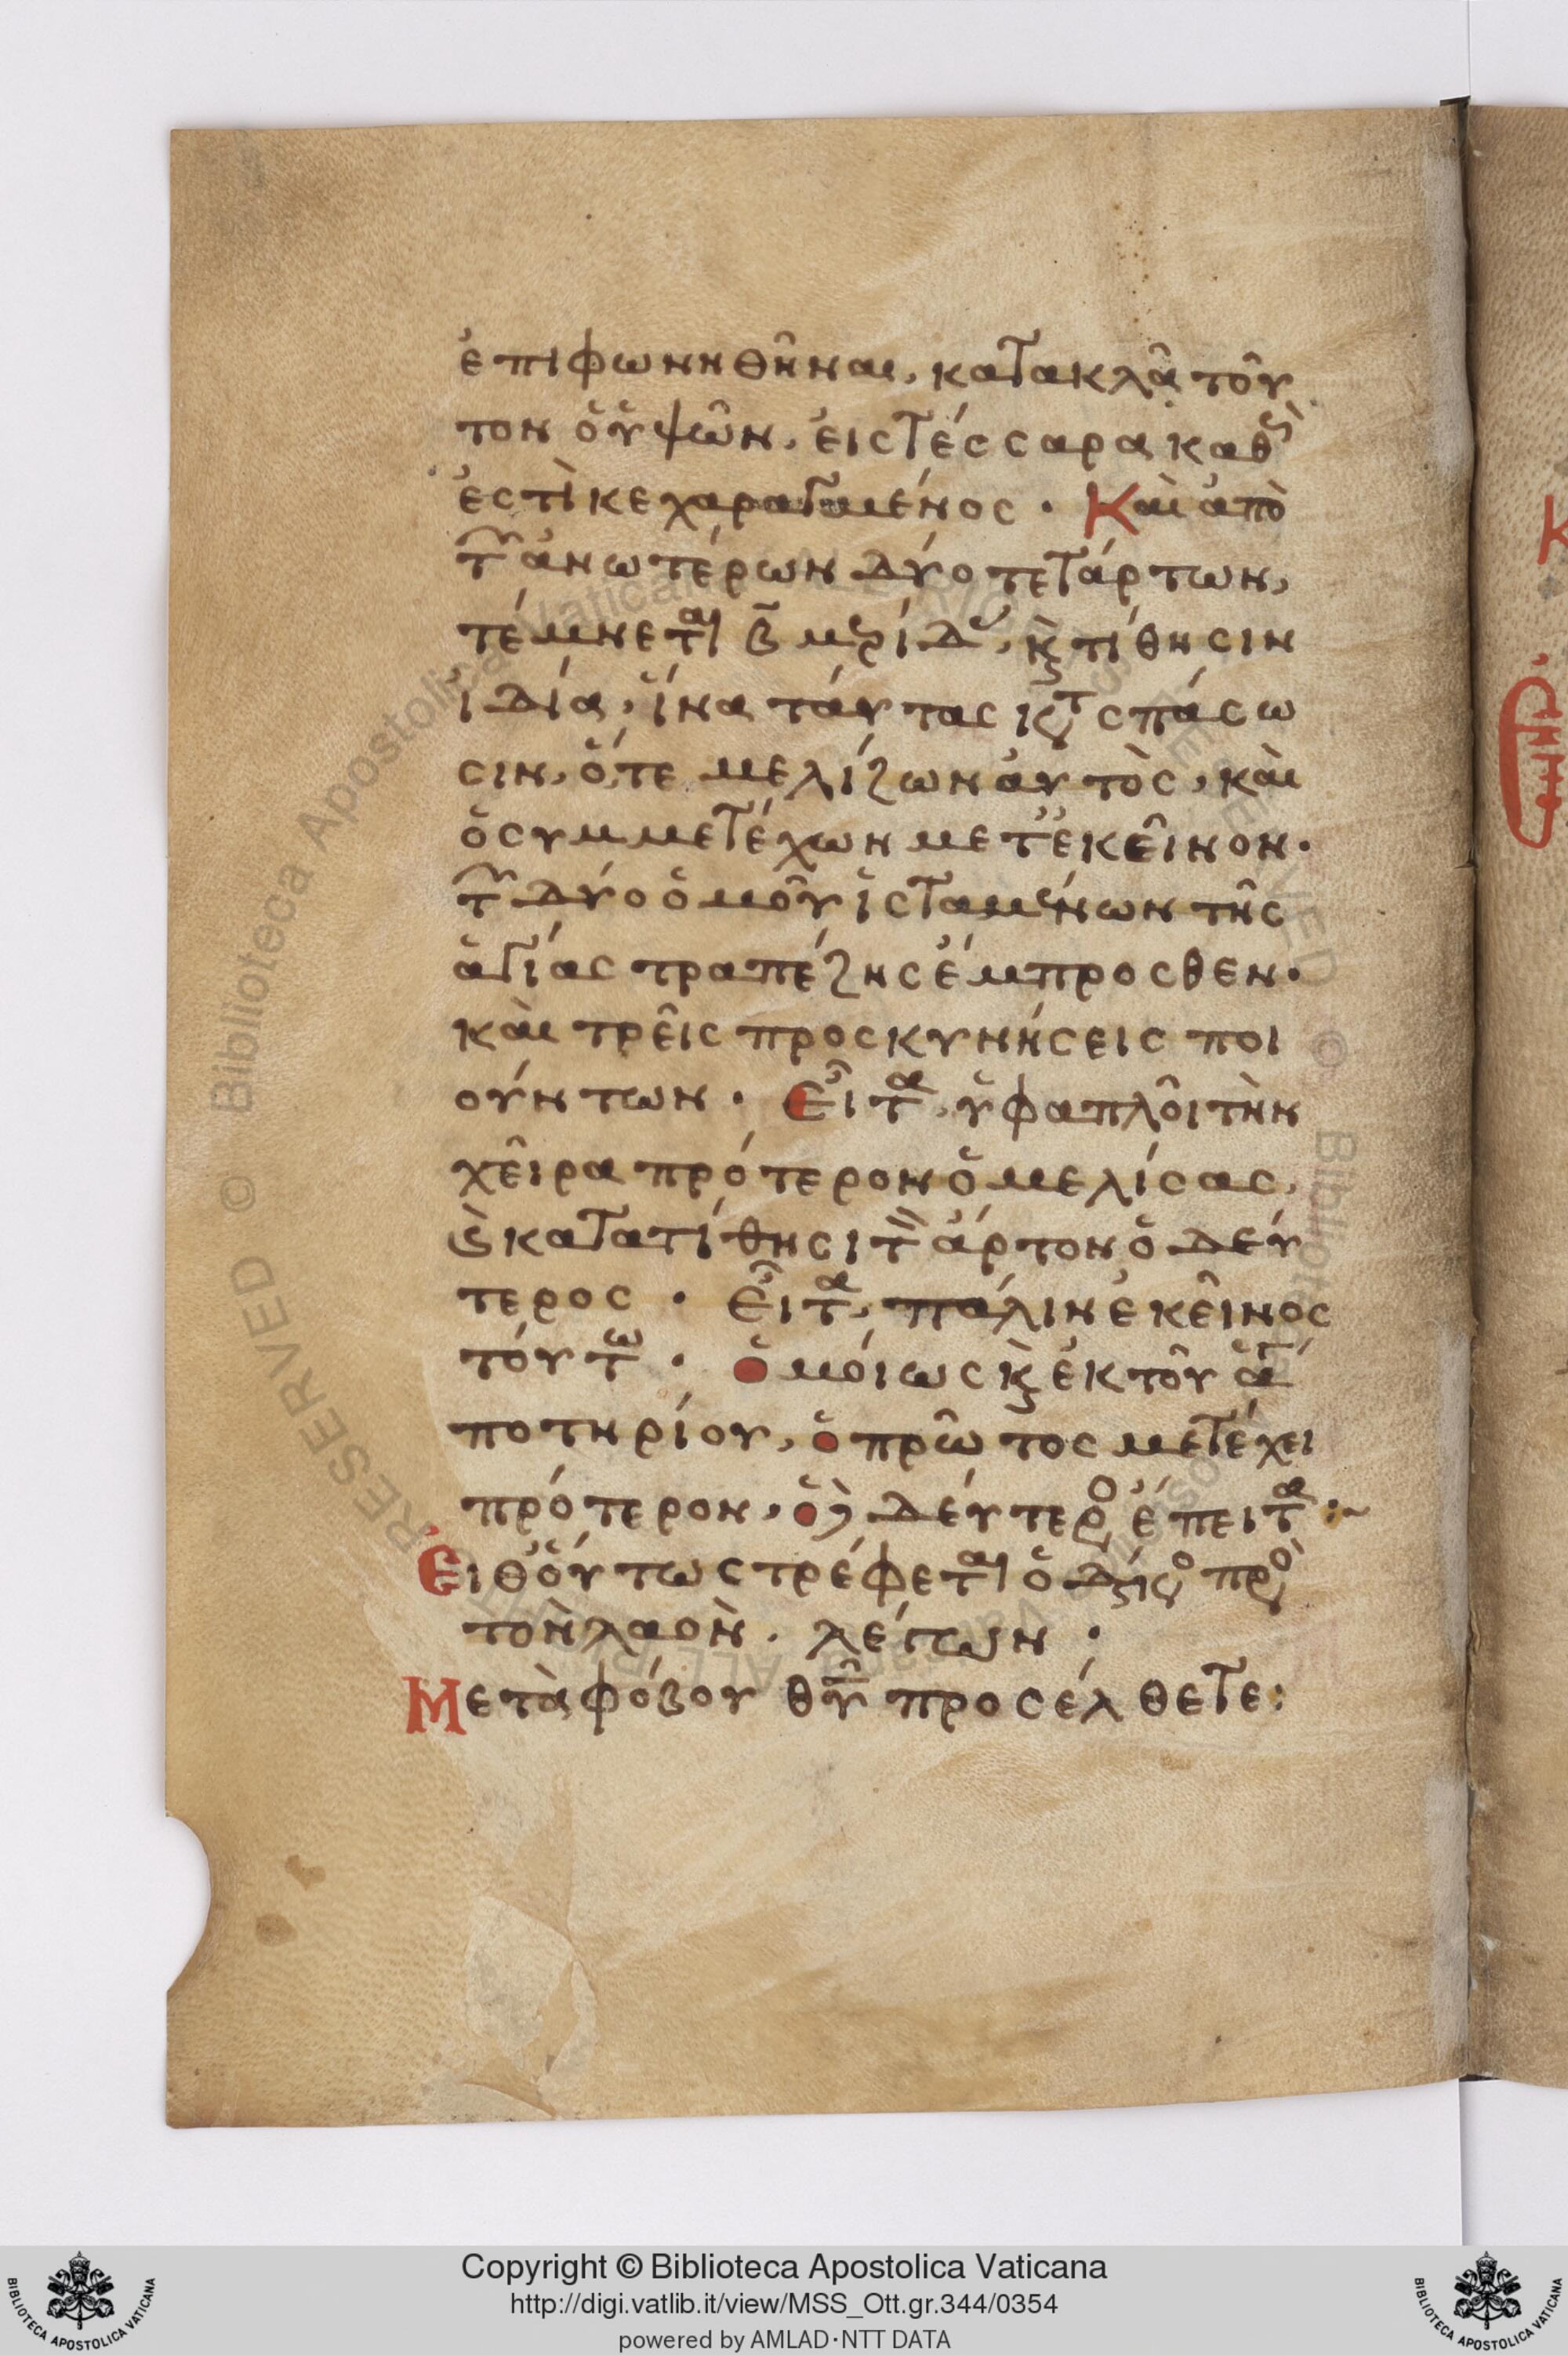 ἐπιφωνηθῆναι, κατακλᾷ τοῦ
τον ὁ ὑψῶν, εἰς τέσσαρα καθὸ
ἐστὶ κεχαραγμένος · Καὶ ἀπὸ
τῶν ἀνωτέρων δύο τετάρτων,
τέμνεται β μερίδας, κ̀ τίθησιν
ἰδία, ἵνα ταύτας
σιν, ὅτε μελίζων αὐτὸς, καὶ
ὁ συμμετέχων μετ' ἐκεῖνον·
τῶν δύο ὁμοῦ ἱσταμένων τῆς
ἁγίας τραπέζης ἔμπροσθεν·
καὶ τρεῖς προσκυνήσεις ποι
ούντων · Εἶτα, ὑφαπλοῖ τὴν
χεῖρα πρότερον ὁ μελίσας,
κατατίθησι τὸν ἄρτον ὁ δεύ
τερος · Εἶτα, πάλιν ἐκεῖνος
τούτω · ὁμοίως κ̀ ἐκ τοῦ ἁγίου
ποτηρίου, ὁ πρῶτος μετέχει
πρότερον, ὁ δὲ δεύτερος ἔπειτα :~
Εἶθ' οὕτως τρέφεται ὁ διάκονος πρὸς
τὸν λαὸν · λέγων ·
Μετὰ φόβου θῦ προσέλθετε:
Copyright © Biblioteca Apostolica Vaticana
http://digi.vatlib.it/view/MSS_Ott.gr.344/0354
powered by AMLAD·NTT DATA
BIBLIOTECA APOSTOLICA VATICANA
BIBLIOTECA APOSTOLICA VATICANA